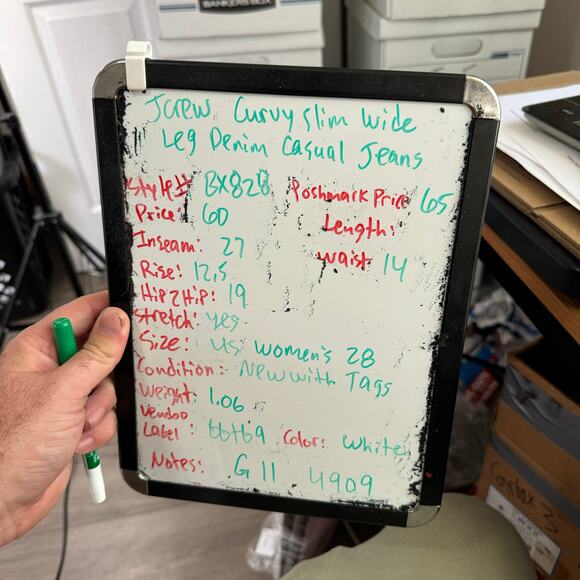 BANKERS BOX
Jcrew Curvy slim Wide
Leg Denim Casual Jeans
Style# BX828 Poshmark Price 65
Price: 60 Length:
Inseam: 27 Waist 14
Rise: 12,5
Hip2Hip: 19
Stretch: yes
Size: us women's 28
Condition: New with Tags
Weight: 1.06
Vendoo
Label: 66+69 Color: White
Notes: G11 4909